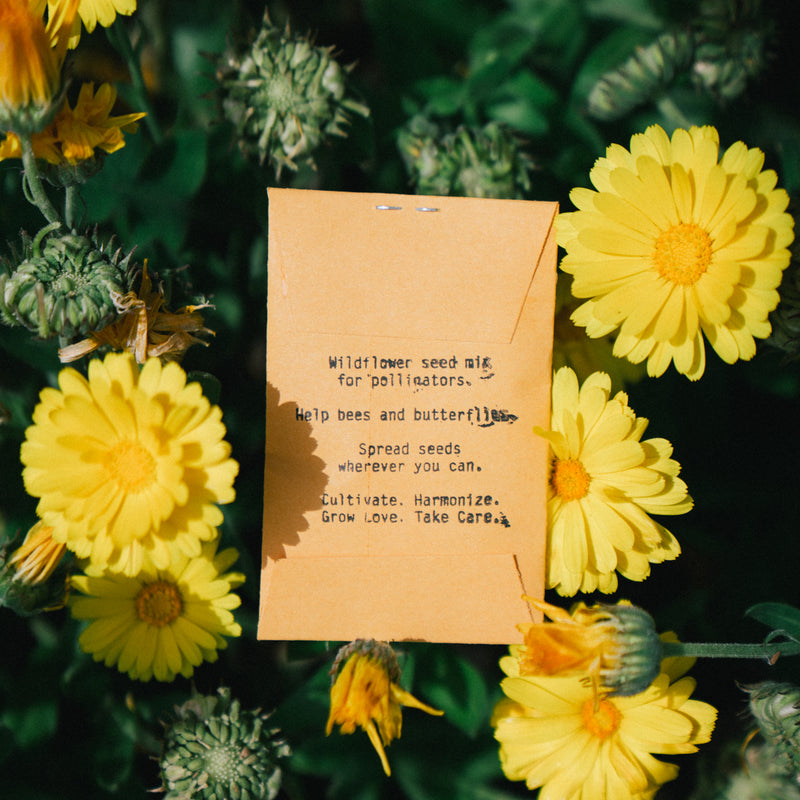 Wildflower seed mix
for pollinators.
Help bees and butterflies.
Spread seeds
wherever you can.
Cultivate. Harmonize.
Grow Love. Take Care.